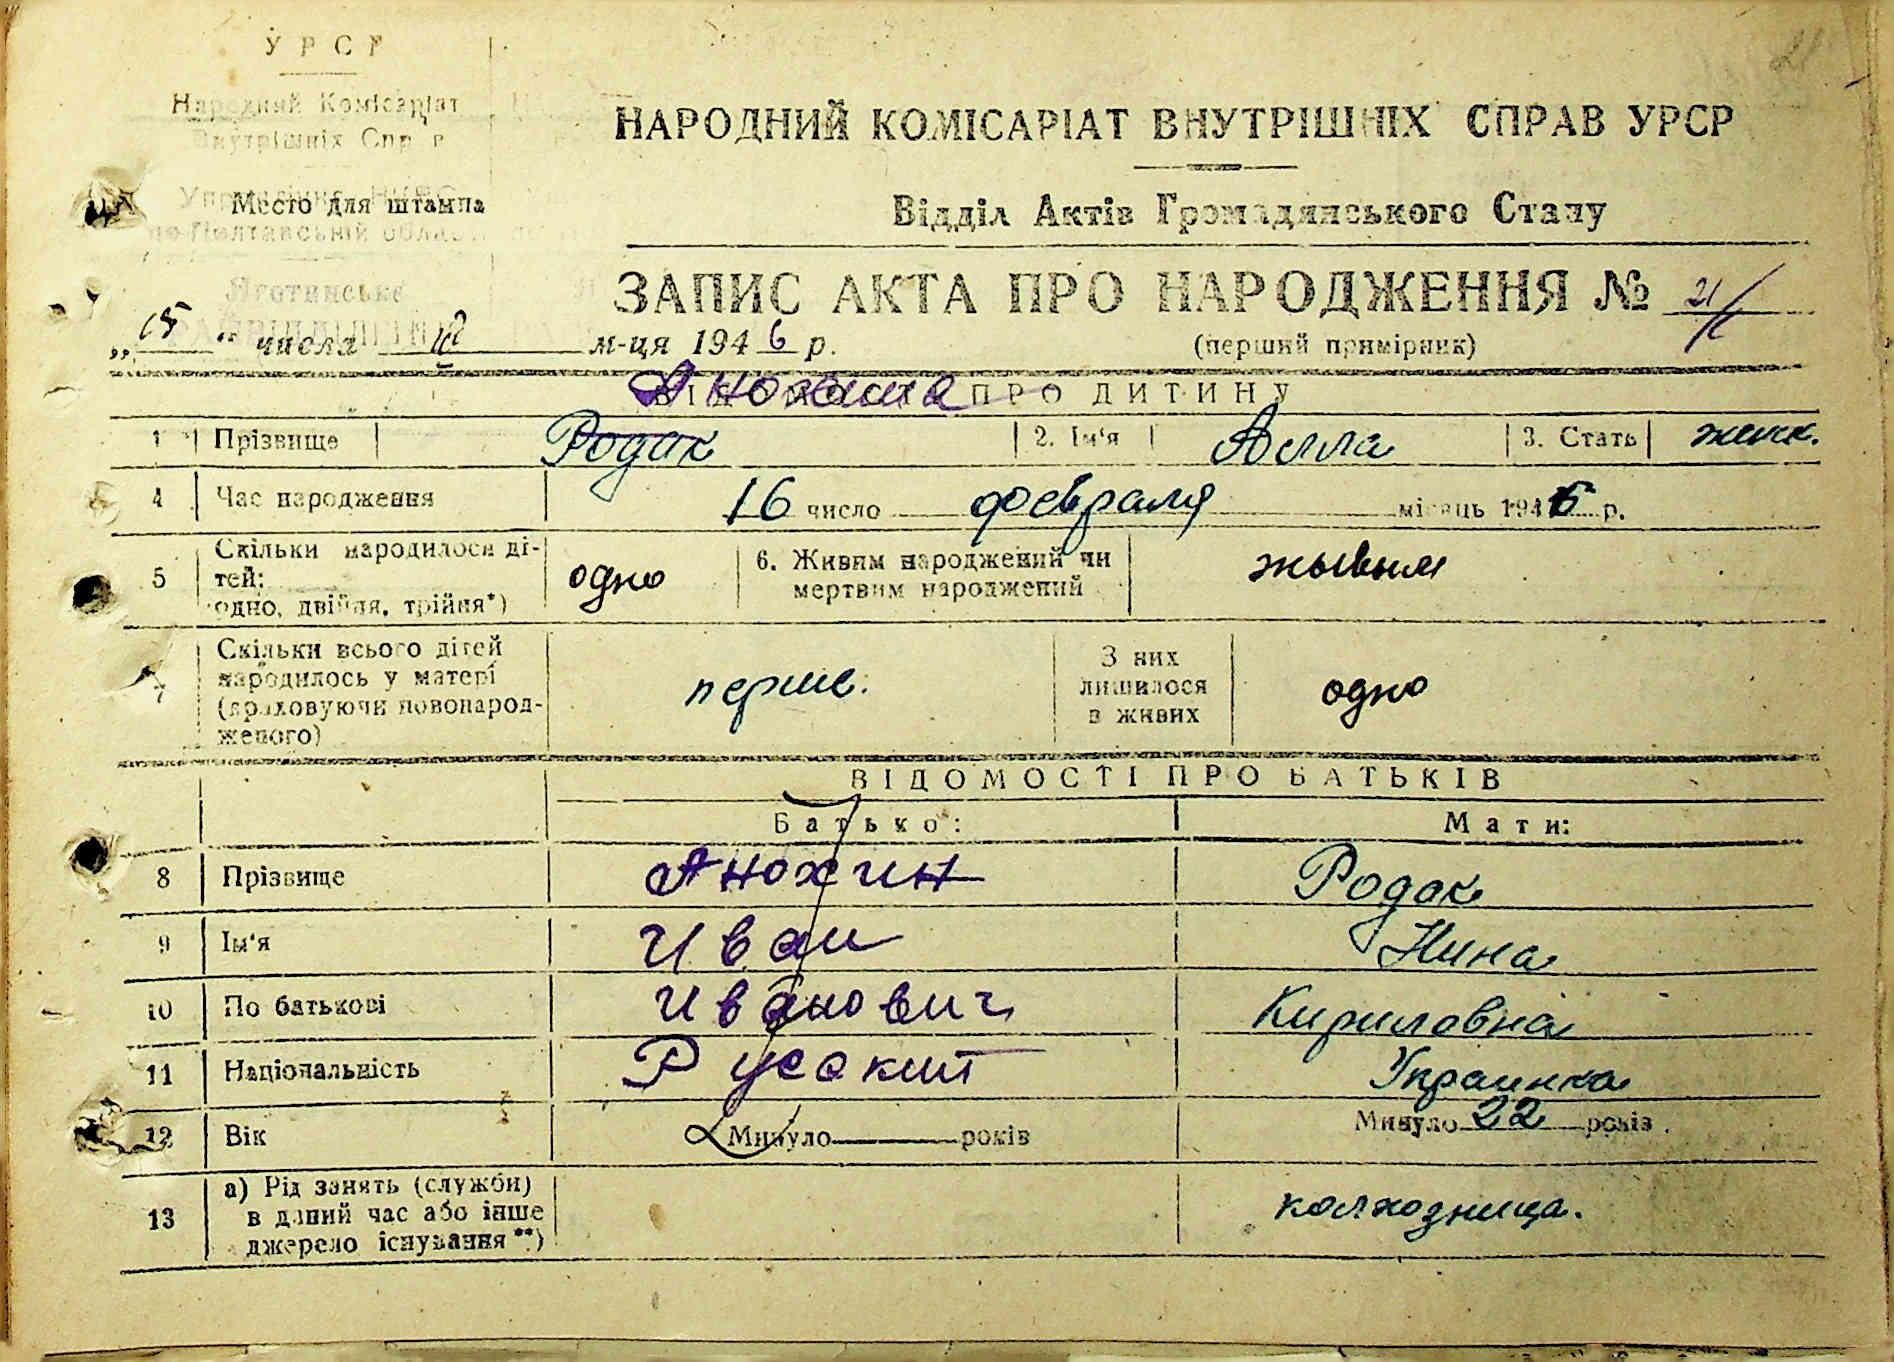 УРСР
Народний Комісаріат
Внутрішніх Спр в
Место для штампа
по Полтавській област
Яготинське
НАРОДНИЙ КОМІСАРІАТ ВНУТРІШНІХ СПРАВ УРСР
Відділ Актів Громадянського Стану
ЗАПИС АКТА ПРО НАРОДЖЕННЯ № 21/
„15“ числа м-ця 1946 р. (перший примірник)
Анохина
ВІДОМОСТІ ПРО ДИТИНУ
1 Прізвище Родак 2. Ім'я Алла 3. Стать женск.
4 Час народження 16 число февраля місяць 1946 р.
5 Скільки народилося ді-
тей:
одно, двійня, трійня*) одно 6. Живим народжений чи
мертвим народжений живым
7 Скільки всього дітей
народилось у матері
(враховуючи новонарод-
женого) перше. З них
лишилося
в живих одно
ВІДОМОСТІ ПРО БАТЬКІВ
Батько: Мати:
8 Прізвище Анохин Родак
9 Ім'я Иван Нина
10 По батькові Иванович Кириловна
11 Національність Русский Украинка
12 Вік Минуло років Минуло 22 років
13 а) Рід занять (служби)
в даний час або інше
джерело існування**) колхозница.